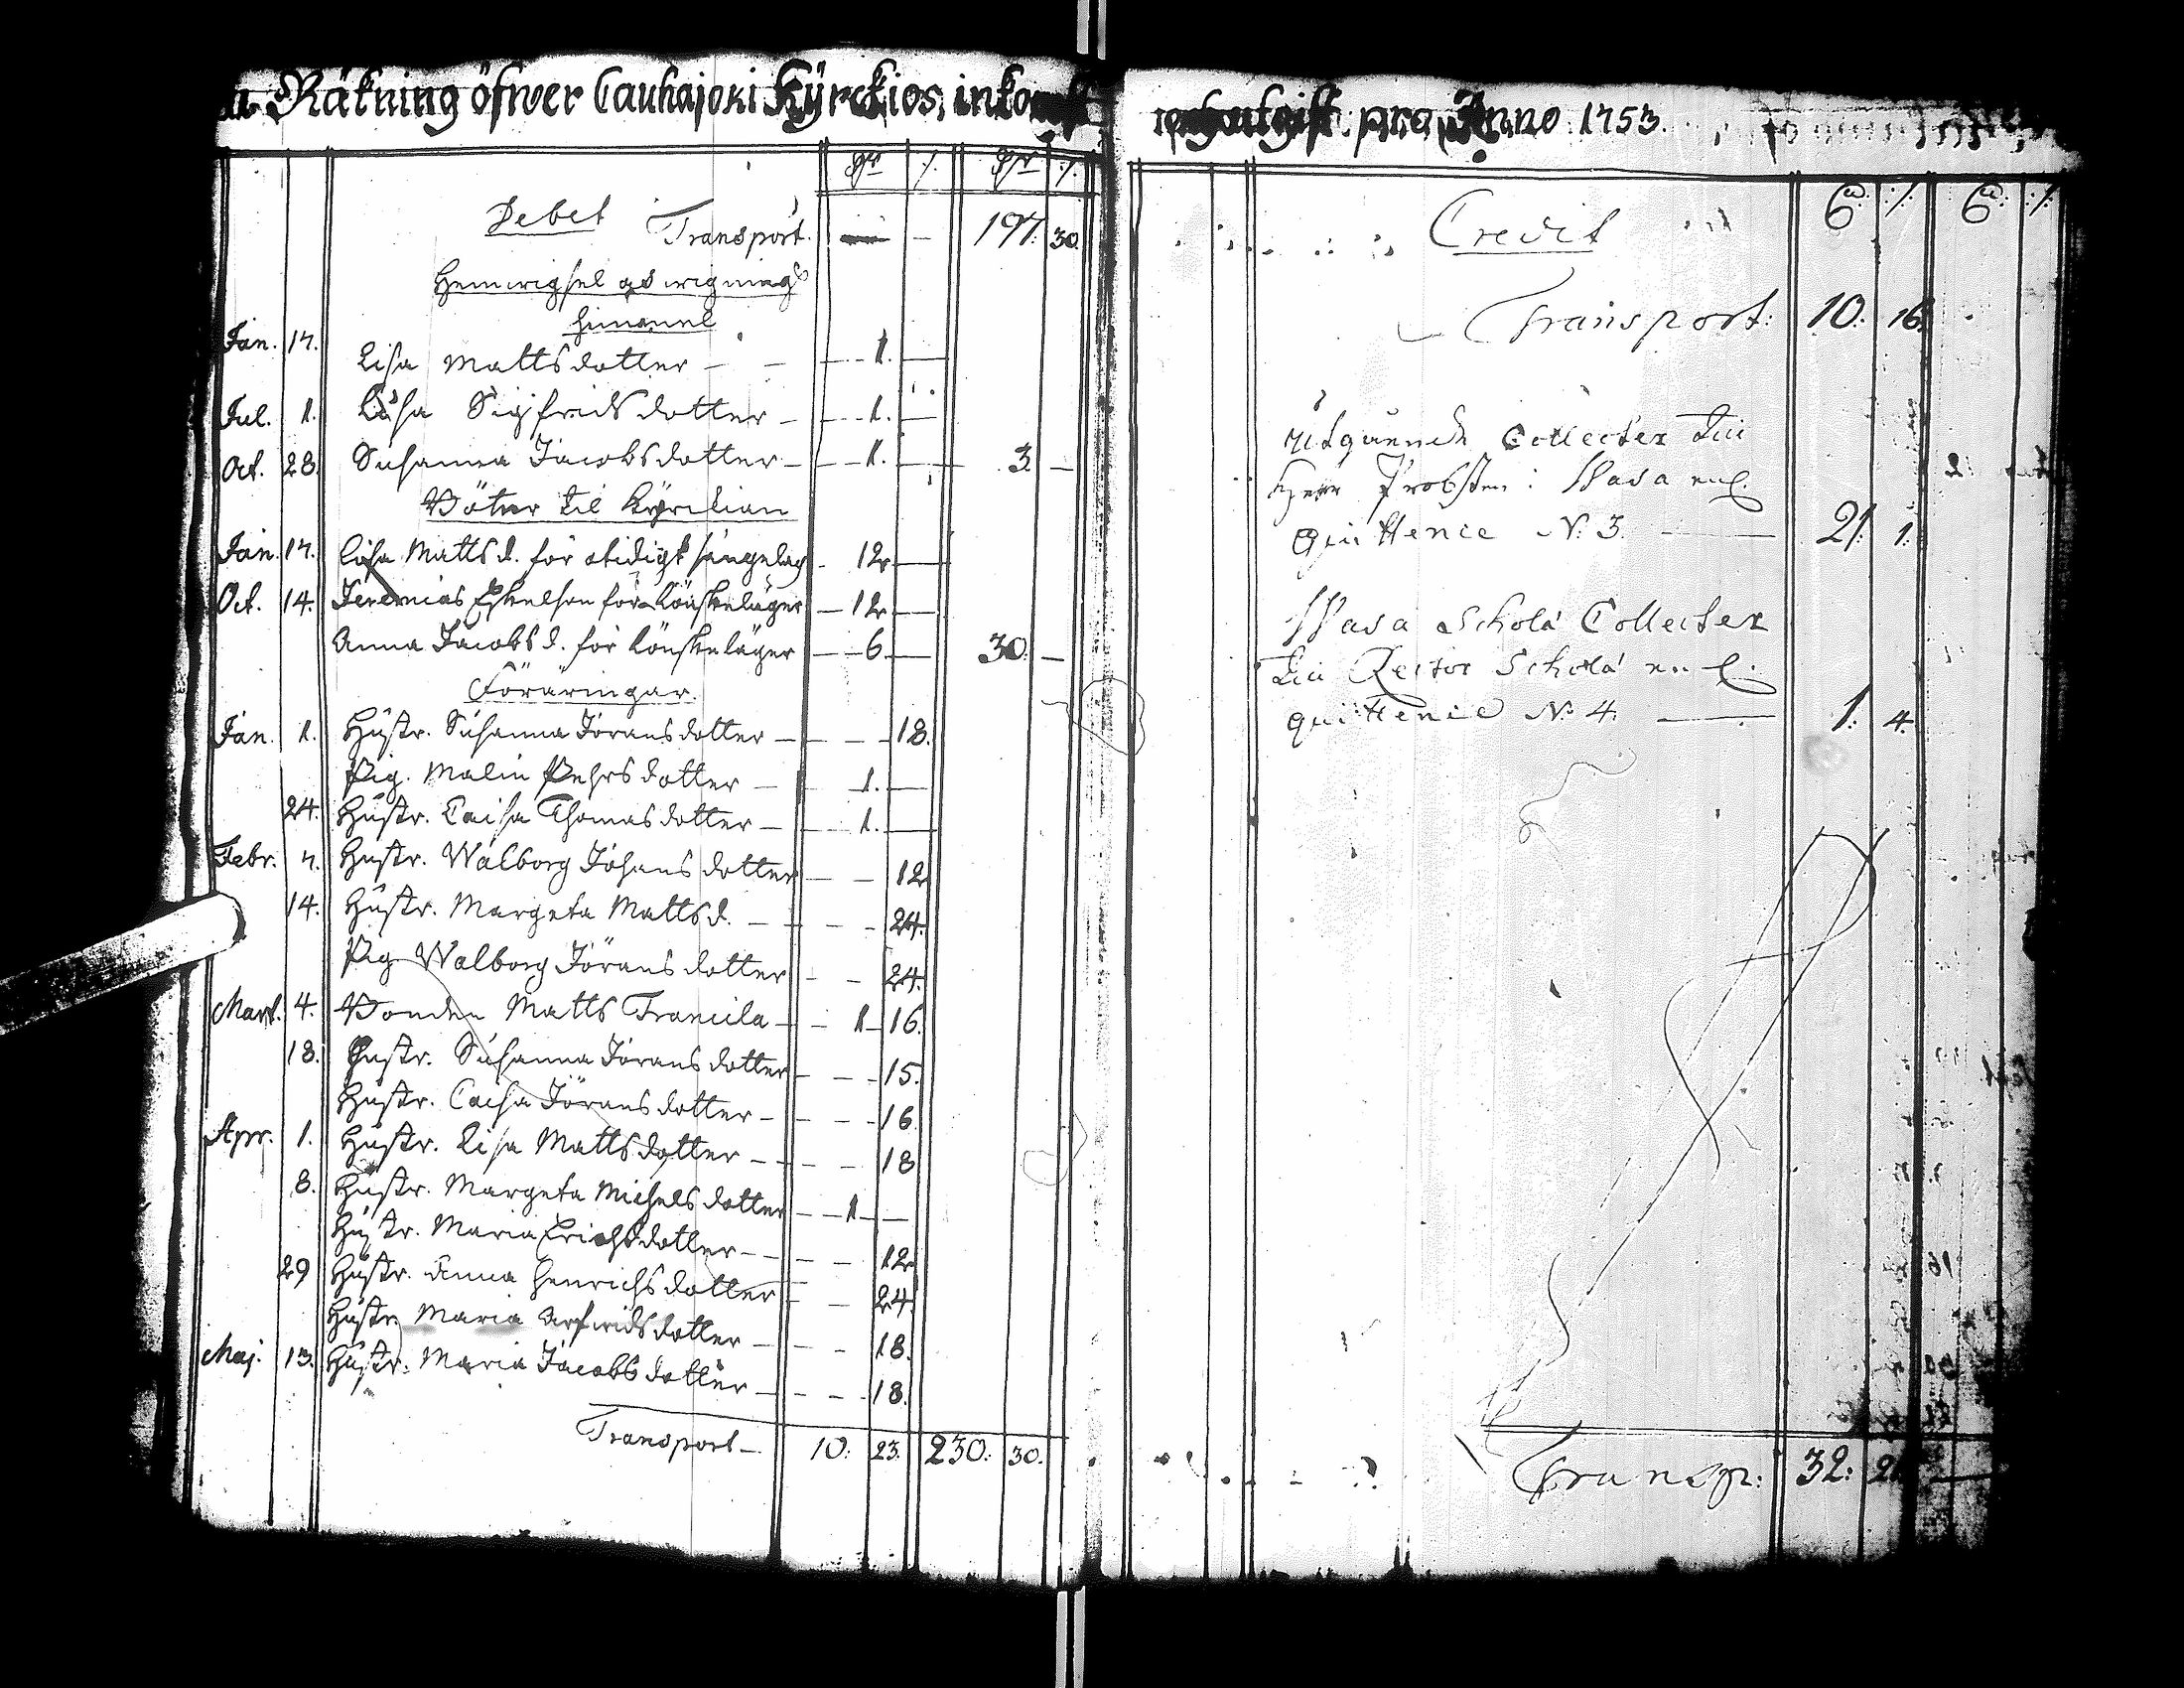 Räkning öfwer Cauhajoki Kÿrckios, inkomst
och utgift pro Anno 1753.
Debet
Transport. — 197. 30.
Jan. 17. Lisa Mattsdotter — 1. —
Jul. 1. Lisa Sigfridsdotter — 1. —
Oct. 28. Susanna Jacobsdotter — 1. — 3. —
Böter til Kÿrckian
Jan. 17. Lisa Mattsd. för otidigt sängelag — 12 —
Oct. 14. Jeremias Eskelson för Lönskeläger — 12 —
Anna Jacobsd. för Lönskeläger — 6 — 30. —
Föräringar.
Jan. 1. Hustr. Susanna Jöransdotter — 18.
Pig. Malin Pehrsdotter — 1. —
24. Hustr. Caisa Thomasdotter — 1. —
Febr. 7. Hustr. Walborg Johansdotter — 12
14. Hustr. Margeta Mattsd. — 24.
Pig. Walborg Jöransdotter — 24.
Mart. 4. Bonden Matts — 1 16.
18. Hustr. Susanna Jöransdotter — 15.
Hustr. Caisa Jöransdotter — 16
Apr. 1. Hustr. Lisa Mattsdotter — 18
8. Hustr. Margeta Michelsdotter — 1 —
Hustr. Maria Erichsdotter — 12
29 Hustr. Anna Henrichsdotter — 24.
Hustr. Maria Arfwidsdotter — 18.
Maj. 13. Hustr. Maria Jacobsdotter — 18.
Transport — 10: 23. 230: 30.
Credit
Transport: 10: 16.
Collecter
Herr Probsten i Wasa
quittence N. 3. — 21. 1.
Wasa Schola Collecter
Rector Schola
quittence N. 4. — 1. 4.
Transp: 32: 21